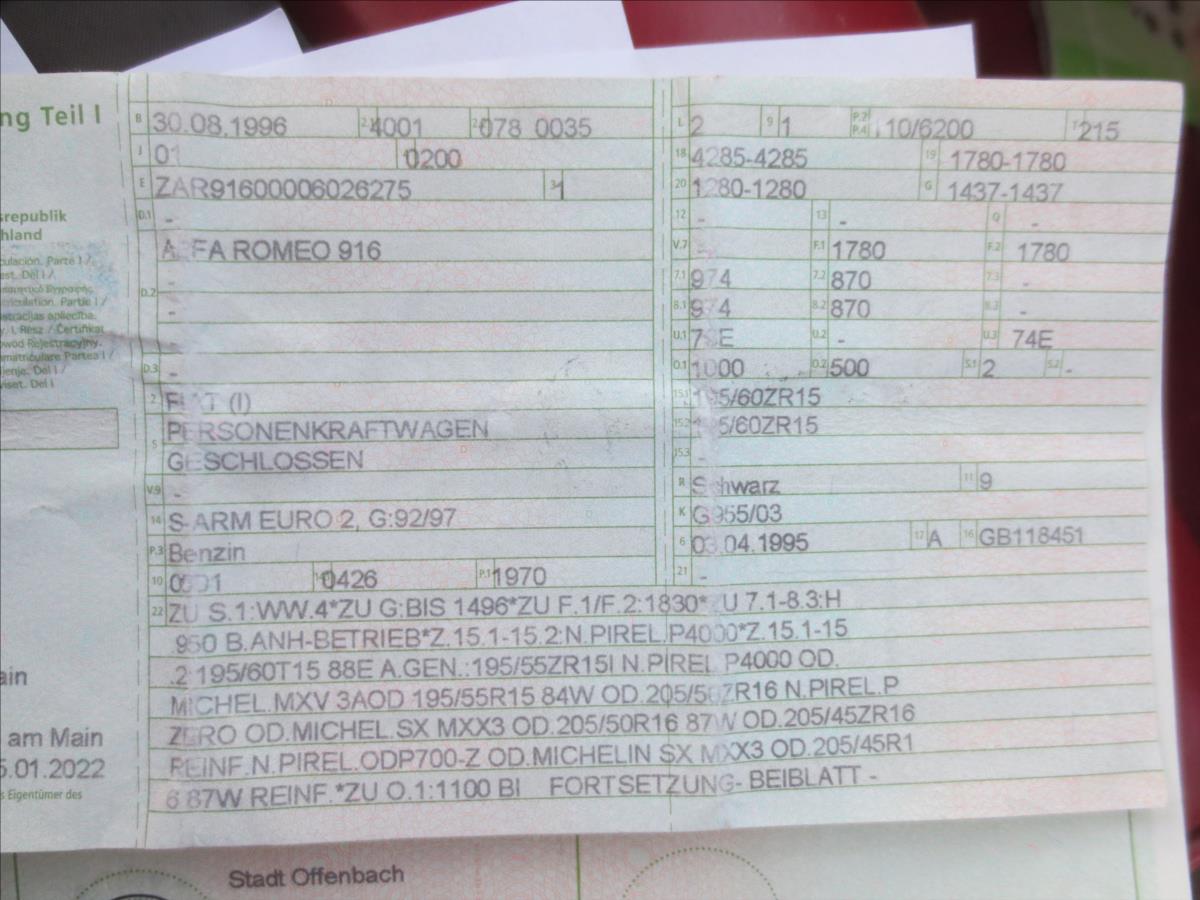 ng Teil I
srepublik
hland
culación. Parte I /
est. Del I /
triculation. Partie I /
y. I. Rész / Čertifikat
owód Rejestracyjny.
matriculare Partea I /
ljenje. Del I /
viset. Del I
ain
am Main
5.01.2022
s Eigentümer des
B 30.08.1996 2.1 4001 2.2 078 0035
J 01 0200
E ZAR91600006026275 3 1
D.1 -
ALFA ROMEO 916
D.2 -
-
D.3 -
2 FIAT (I)
5 PERSONENKRAFTWAGEN
GESCHLOSSEN
V.9 -
14 S-ARM EURO 2, G:92/97
P.3 Benzin
10 0001 14.1 0426 P.1 1970
L 2 9 1 P.2 P.4 110/6200 T 215
18 4285-4285 19 1780-1780
20 1280-1280 G 1437-1437
12 - 13 - Q -
V.7 - F.1 1780 F.2 1780
7.1 974 7.2 870 7.3 -
8.1 974 8.2 870 8.3 -
U.1 78E U.2 - U.3 74E
O.1 1000 O.2 500 S.1 2 S.2 -
15.1 195/60ZR15
15.2 195/60ZR15
15.3 -
R Schwarz 11 9
K G955/03
6 03.04.1995 17 A 16 GB118451
21 -
22 ZU S.1:WW.4*ZU G:BIS 1496*ZU F.1/F.2:1830*ZU 7.1-8.3:H
.950 B.ANH-BETRIEB*Z.15.1-15.2:N.PIREL.P4000*Z.15.1-15
.2 195/60T15 88E A.GEN.:195/55ZR15I N.PIREL P4000 OD.
MICHEL.MXV 3AOD 195/55R15 84W OD.205/50ZR16 N.PIREL.P
ZERO OD.MICHEL.SX MXX3 OD.205/50R16 87W OD.205/45ZR16
REINF.N.PIREL.ODP700-Z OD.MICHELIN SX MXX3 OD.205/45R1
6 87W REINF.*ZU O.1:1100 BI FORTSETZUNG- BEIBLATT -
Stadt Offenbach